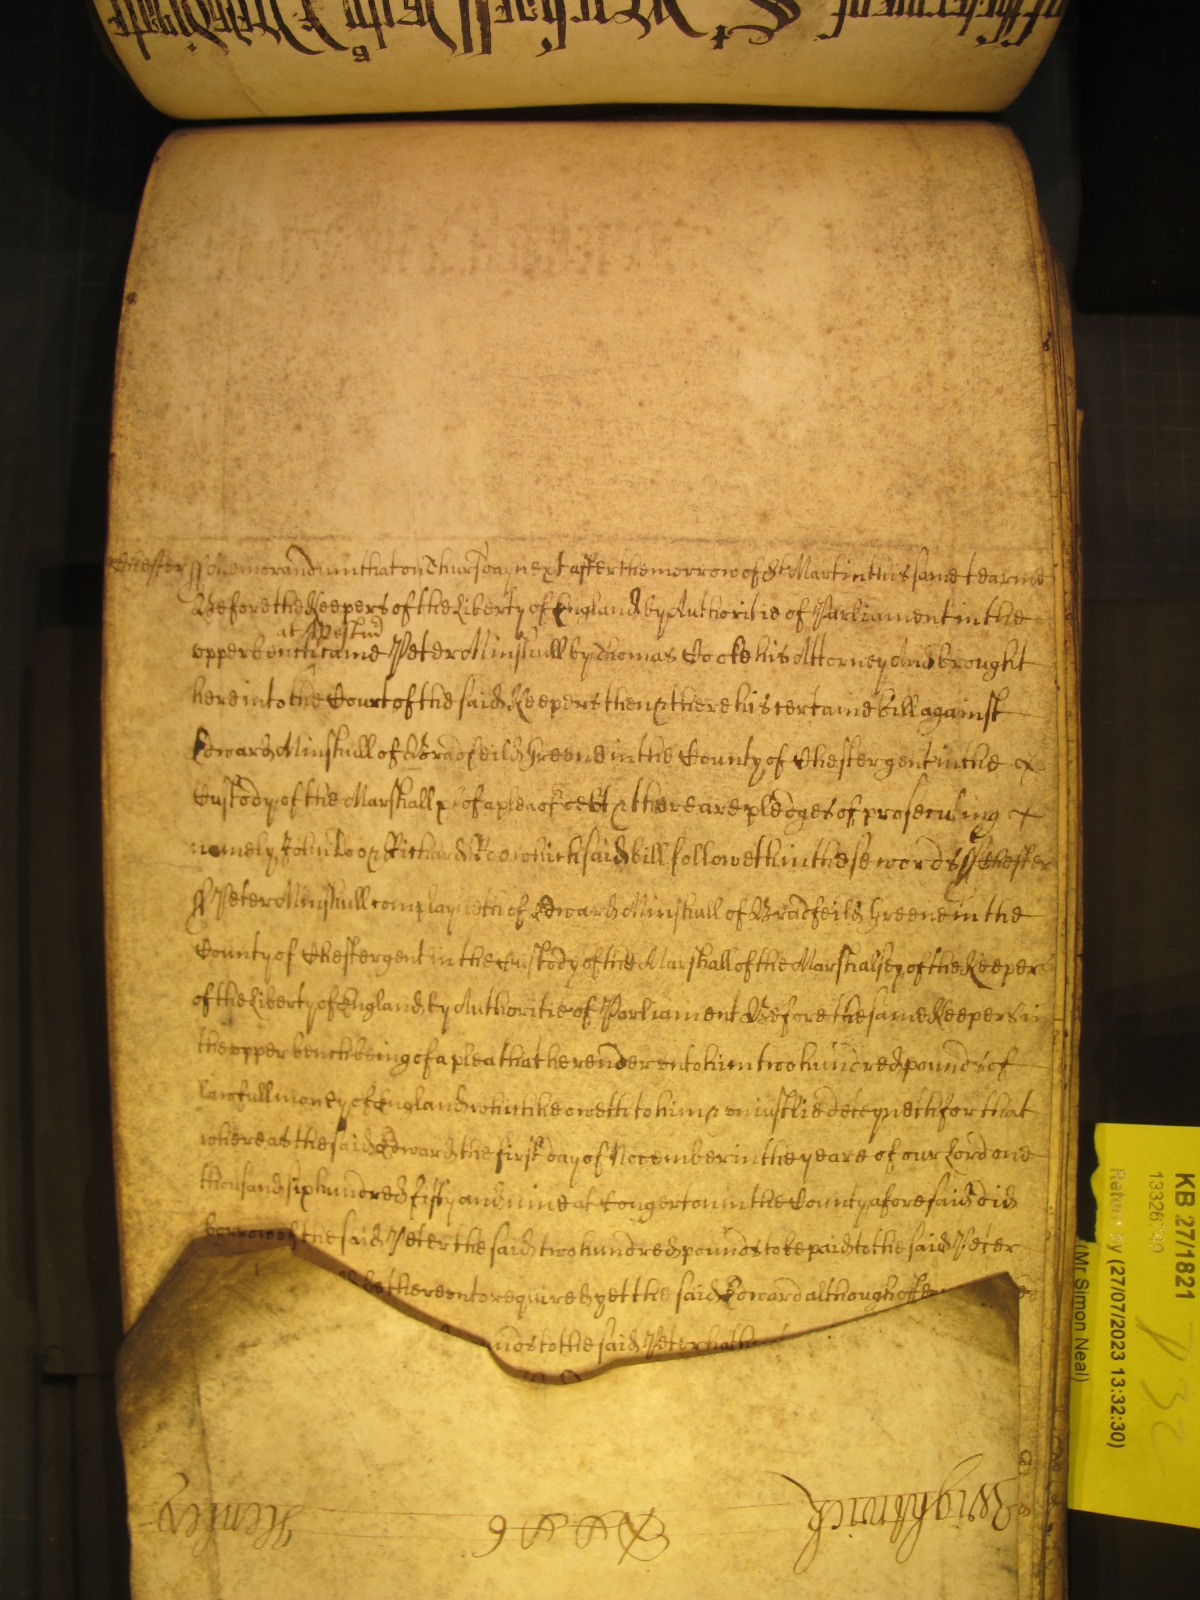 Chester ss Memorandum that on Thursday next after the morrow of St Martin this same tearme
Before the Keepers of the Liberty of England by Authoritie of Parliament in the
at Westmr
upper bench came Peter Minshull by Thomas Cooke his Attorney And brought
here into the Court of the said Keepers then & there his certaine bill against
Edward Minshull of Bradfeild Greene in the County of Chester gent in the
Custody of the Marshall &c of a plea of debt & there are pledges of prosecuting
namely John Doo & Richard Roo which said bill followeth in these words ss Chester
ss Peter Minshull complayneth of Edward Minshull of Bradfeild Greene in the
County of Chester gent in the Custody of the Marshall of the Marshalsey of the Keepers
of the Liberty of England by Authoritie of Parliament Before the same Keepers in
the upper bench being of a plea that he render unto him two hundred pounds of
lawfull money of England which he oweth to him & uniustlie deteyneth for that
whereas the said Edward the first day of November in the yeare of our Lord one
thousand six hundred fifty and nine at Congerton in the County aforesaid did
borrow of the said Peter the said two hundred pounds to be paid to the said Peter
be thereunto required yet the said Edward although often
unds to the said Peter hath
Wightwick
Henley
KB 27/1821
Return by (27/07/2023 13:32:30)
(Mr Simon Neal)